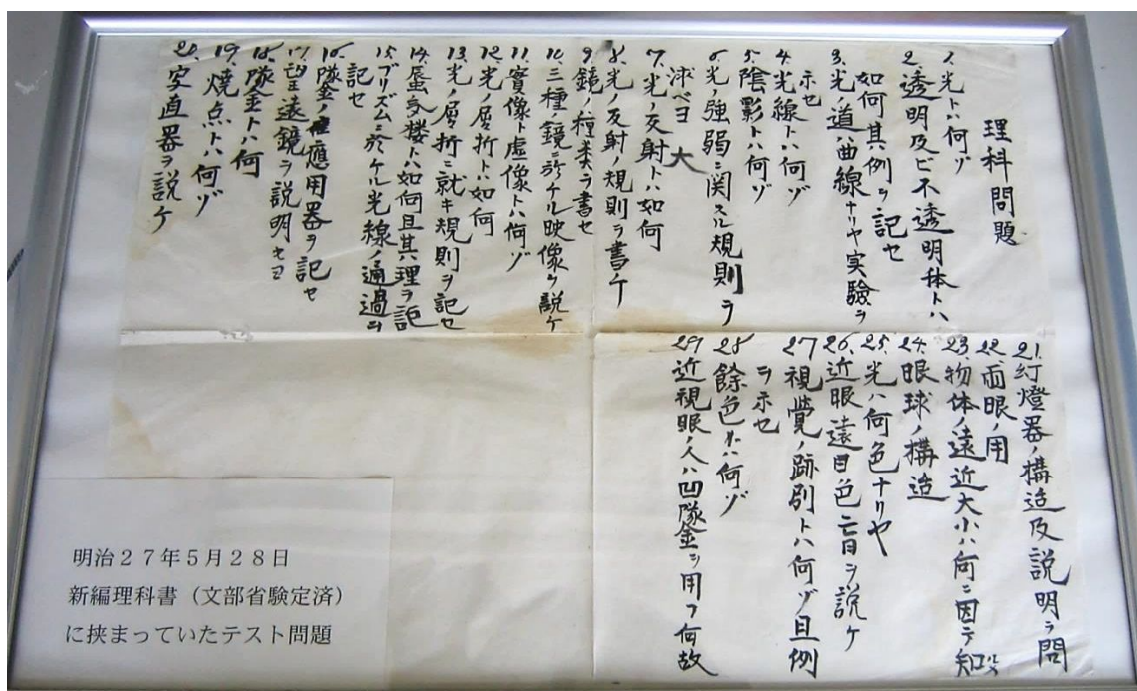 理科問題
1. 光トハ何ゾ
2. 透明及ビ不透明体トハ
如何其ノ例ヲ記セ
3. 光ノ道ハ曲線ナリヤ実験ヲ
示セ
4. 光線トハ何ゾ
5. 陰影トハ何ゾ
6. 光ノ強弱ニ関スル規則ヲ
求ベヨ 大
7. 光ノ反射トハ如何
8. 光ノ反射ノ規則ヲ書ケ
9. 鏡ノ種類ヲ書セ
10. 三種ノ鏡ニ於ケル映像ヲ説ケ
11. 實像ト虚像トハ何ゾ
12. 光ノ屈折トハ如何
13. 光ノ屈折ニ就キ規則ヲ記セ
14. 蜃気楼トハ如何且其理ヲ記
15. プリズムニ於ケル光線ノ通過ヲ
記セ
16. 隊金ノ應用器ヲ記セ
17. 望遠鏡ヲ説明セヨ
18. 隊金トハ何
19. 焼点トハ何ゾ
20. 写直器ヲ説ケ
21. 幻燈器ノ構造及説明ヲ問
22. 両眼ノ用
23. 物体ノ遠近大小ハ何ニ因テ知
24. 眼球ノ構造
25. 光ハ何色ナリヤ
26. 近眼遠目色盲ヲ説ケ
27. 視覚ノ跡列トハ何ゾ且例
ヲ示セ
28. 餘色トハ何ゾ
29. 近視眼ノ人ハ凹隊金ヲ用フ何故
明治27年5月28日
新編理科書（文部省験定済）
に挟まっていたテスト問題